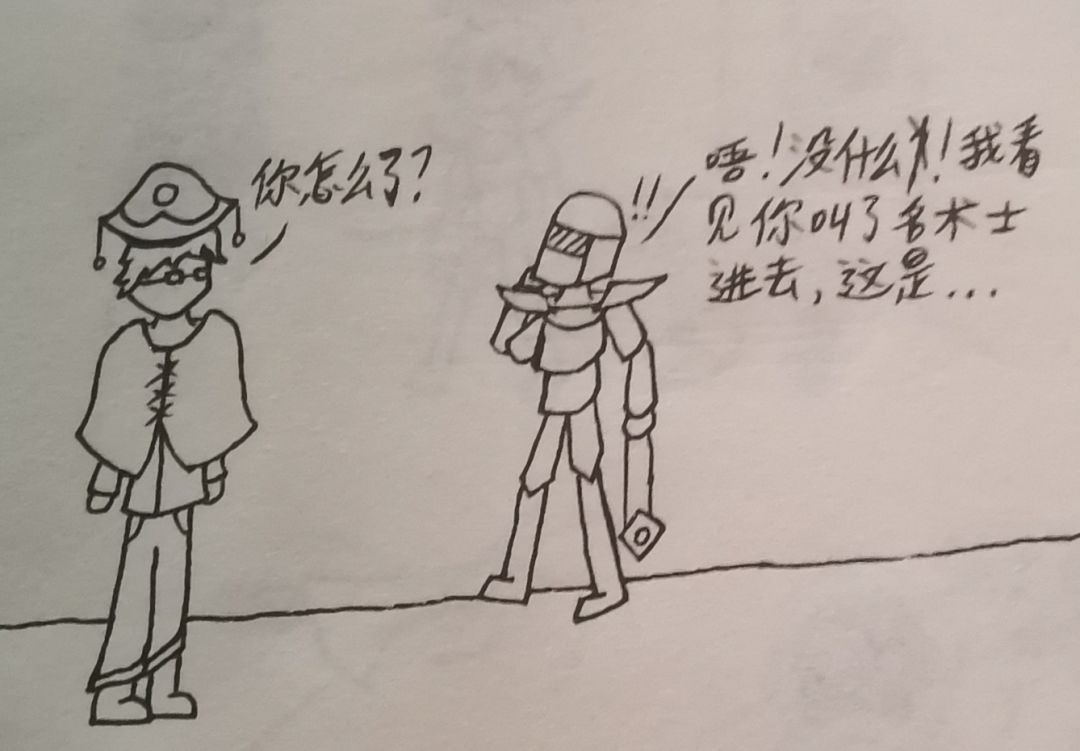 你怎么了?
!!
唔!没什么!我看
见你叫了名术士
进去,这是...